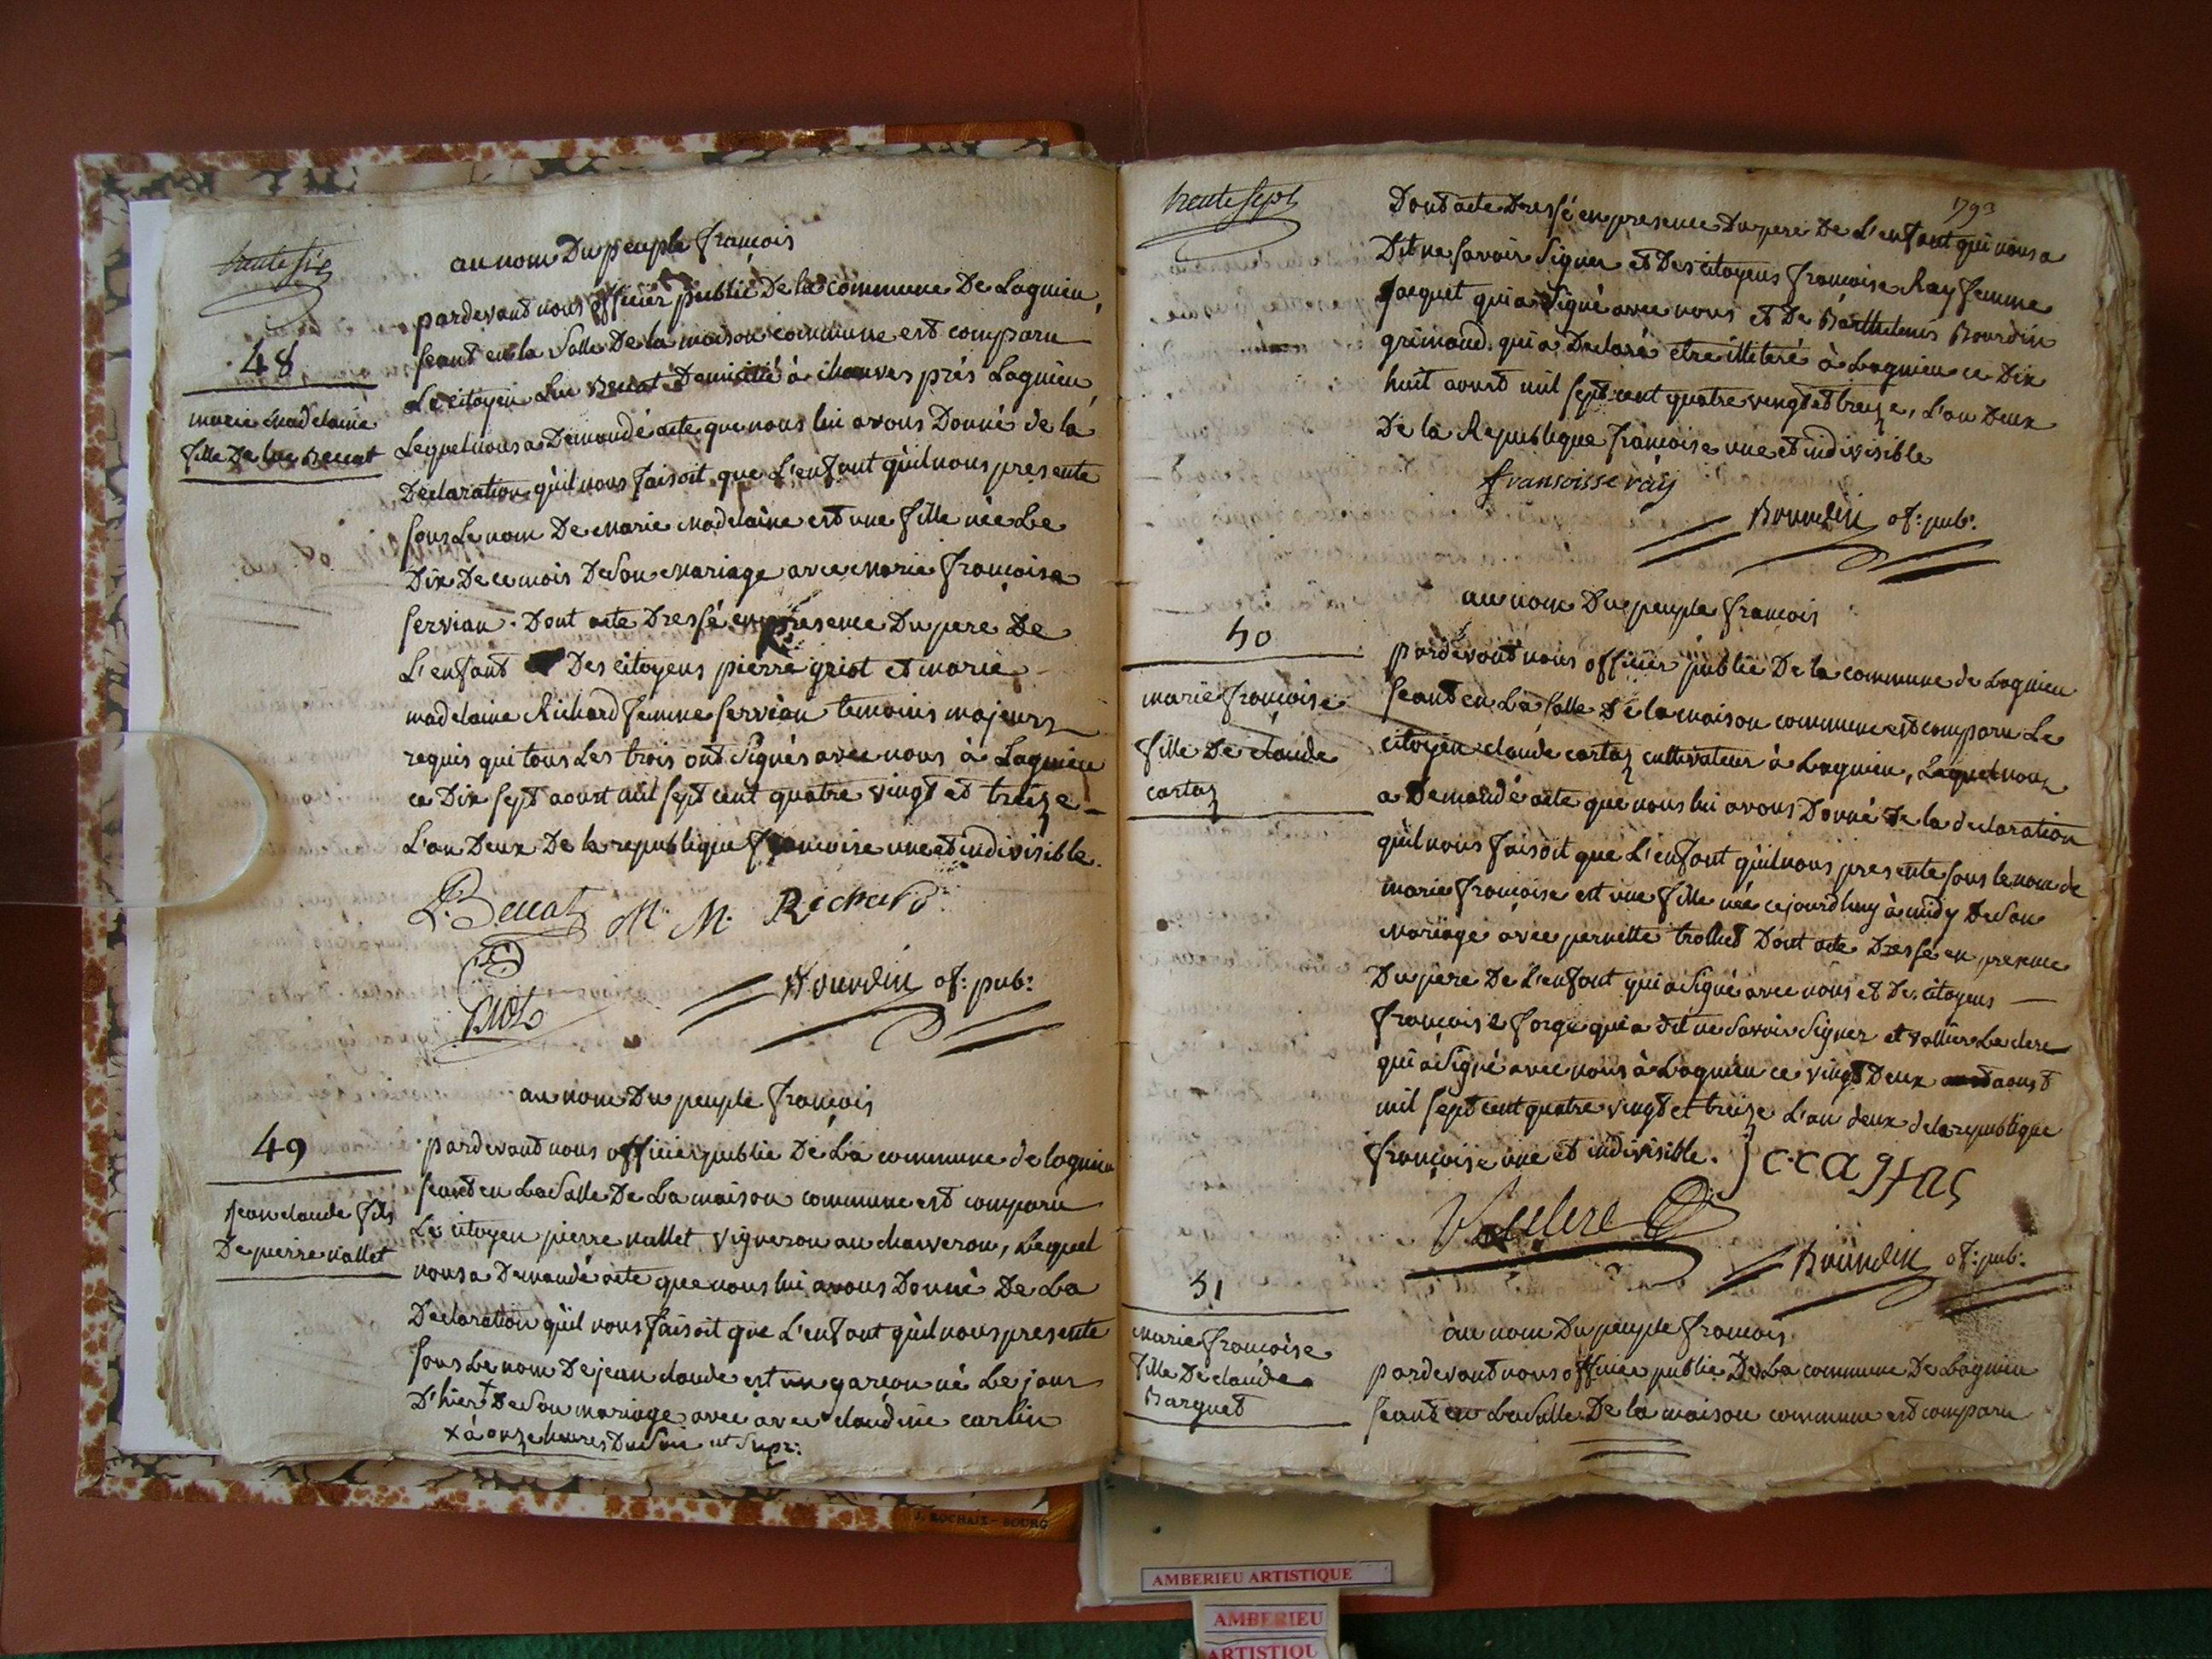 trente six
au nom Du peuple francois
pardevant nous officier public De la commune De Lagnieu,
seant en la Salle De la maison commune est comparu
Le citoyen Luc Beccat Domicilié à chanves prés Lagnieu,
Lequel nous a Demandé acte que nous lui avons Donné de la
Declaration qu'il nous faisoit que L'enfant qu'il nous presente
sous Le nom De marie madelaine est une fille née Le
Dix De ce mois De Son mariage avec marie françoise
servian. Dont acte Dressé en presence Du pere De
L'enfant Des citoyens pierre griot et marie
madelaine Richard femme servian temoins majeurs
requis qui tous Les trois ont Signés avec nous à Lagnieu
ce Dix sept aoust mil sept cent quatre vingt et treize
L'an Deux De la republique francoise une et indivisible.
48
marie madelaine
fille De luc Beccat
L. Beccat M. M. Richard
Bourdin of: pub:
au nom Du peuple francois
49
jean claude fils
De pierre nallet
pardevant nous officier public De La commune de lagnieu
seant en La Salle De La maison commune est comparu
Le citoyen pierre nallet vigneron au charveron, Lequel
nous a Demandé acte que nous lui avons Donné De La
Declaration qu'il nous faisoit que L'enfant qu'il nous presente
sous Le nom De jean claude est un garcon né Le jour
D'hier + De Son mariage avec avec claudine carlin
x à onze heures Du Soir ut Supr:
J. ROCHAIX - BOURG
trente sept
1793
Dont acte Dressé en presence Du pere De L'enfant qui nous a
Dit ne savoir Signer et Des citoyens francoise Ray femme
Jacquet qui a Signé avec nous et De Barthelemis Bourdin
grimand qui a Declaré etre illiteré à Lagnieu ce Dix
huit aoust mil sept cent quatre vingt et treize, L'an Deux
De la Republique francoise une et indivisible
fransoisse ray
Bourdin of: pub:
au nom Du peuple francois
50
marie françoise
fille De claude
cartaz
pardevant nous officier public De la commune de Lagnieu
seant en La salle De la maison commune est comparu Le
citoyen claude cartaz cultivateur à Lagnieu, Lequel nous
a Demandé acte que nous lui avons Donné De la declaration
qu'il nous faisoit que L'enfant qu'il nous presente sous le nom de
marie françoise est une fille née cejourdhuy à midy De Son
mariage avec pernette trolliet Dont acte Dressé en presence
Du pere De L'enfant qui a Signé avec nous et Des citoyens
françoise forge qui a dit ne Savoir Signer et vallier Leclerc
qui a Signé avec nous à Lagnieu ce vingt Deux aoust
mil sept cent quatre vingt et treize L'an deux de la republique
françoise une et indivisible.
Bourdin of: pub:
51
marie françoise
fille De claude
Barquet
au nom Du peuple francois
pardevant nous officier public De La commune De Lagnieu
seant en La Salle De la maison commune est comparu
AMBERIEU ARTISTIQUE
AMBERIEU
ARTISTIQU